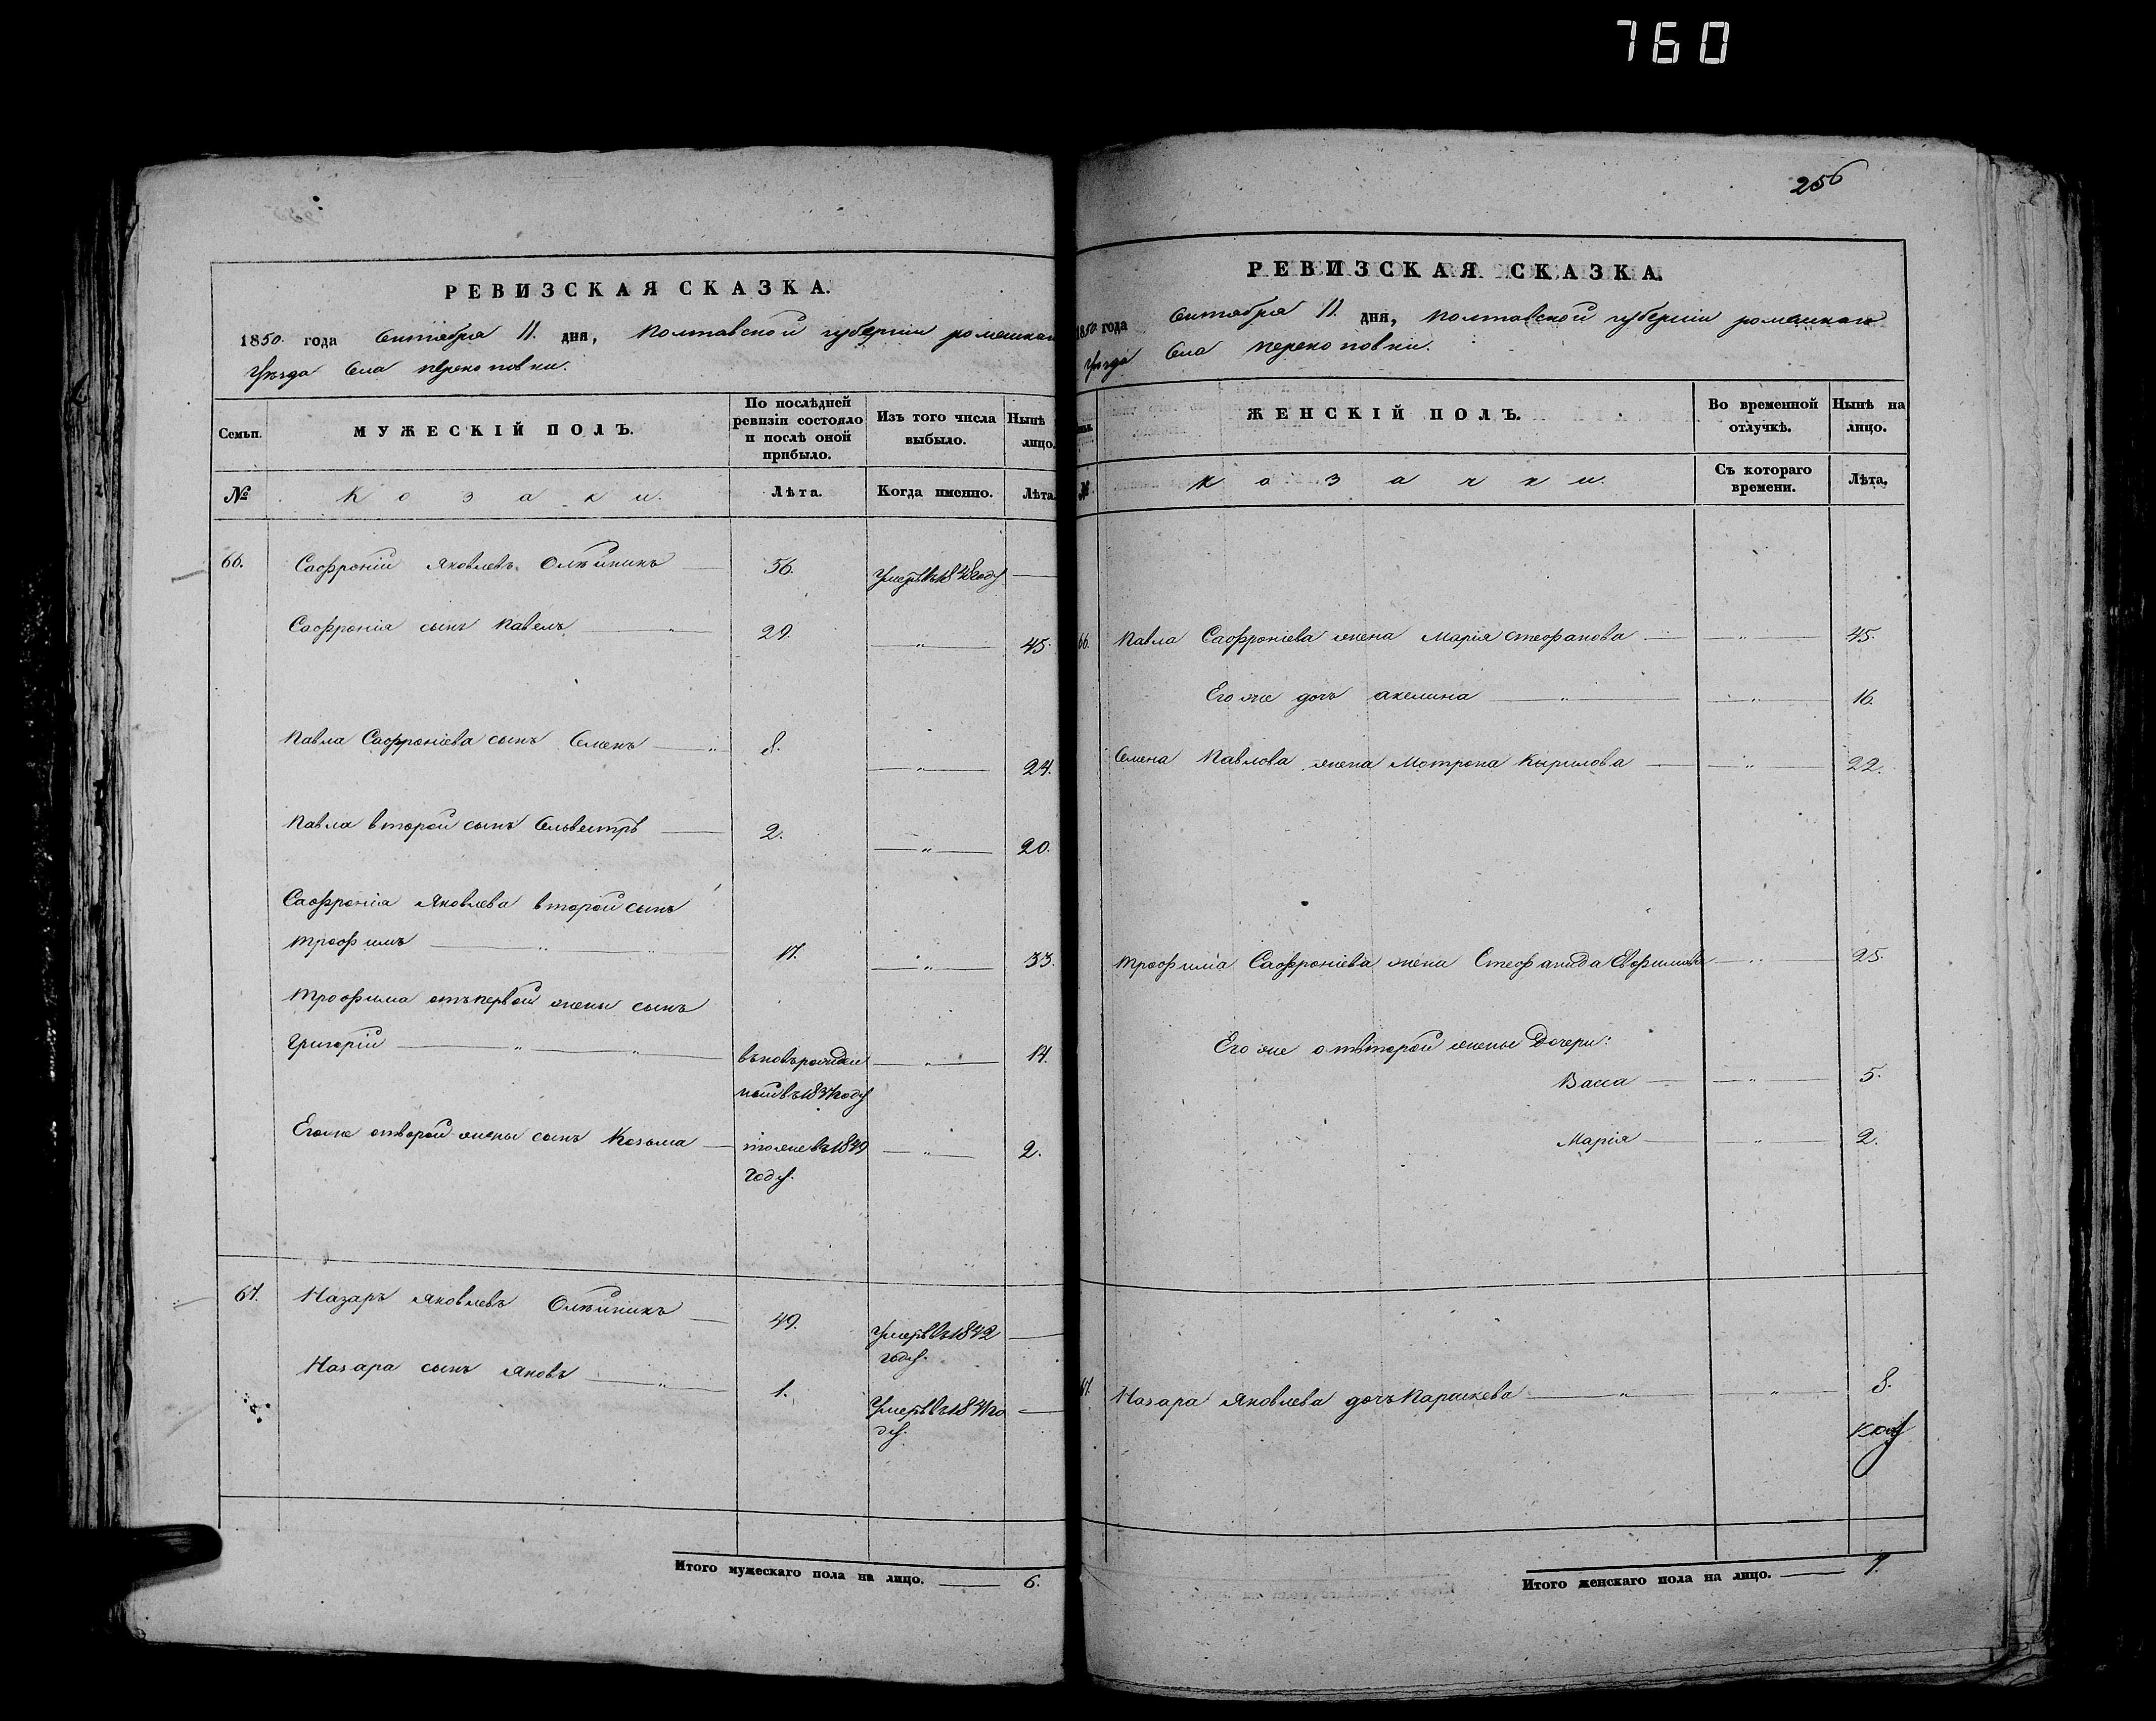 760
РЕВИЗСКАЯ СКАЗКА.
1850 года Октября 11. дня, Полтавской губерніи роменскаго
Уѣзда Села Перекоповки.
Семьи.
МУЖЕСКІЙ ПОЛЪ.
По послѣдней ревизіи состояло и послѣ оной прибыло.
Изъ того числа выбыло.
Нынѣ лицо.
№
Козаки.
Лѣта.
Когда именно.
Лѣта.
66. Саофроній Яковлевъ Олѣйникъ 56. Умеръ въ 1848 году
Саофронія сынъ Павелъ 29. 45.
Павла Саофроніева сынъ Семенъ 8. 24.
Павла второй сынъ Сельвестръ 2. 20.
Саофронія Яковлева второй сынъ
Трофимъ 17. 33.
Трофима отъ первой жены сынъ
Григорій 14.
въ 1837 году
Егоже отвторой жены сынъ Козьма тоже въ 1849 2.
году.
67. Назаръ Яковлевъ Олѣйникъ 49. Умеръ въ 1842
году.
Назара сынъ Яковъ 1. Умеръ въ го
ду.
Итого мужескаго пола на лицо. 6.
256
РЕВИЗСКАЯ СКАЗКА.
1850 года Октября 11. дня, Полтавской губерніи роменскаго
Уѣзда Села Перекоповки.
ЖЕНСКІЙ ПОЛЪ.
Во временной отлучкѣ.
Нынѣ на лицо.
№
Козачки.
Съ котораго времени.
Лѣта.
66. Павла Саофроніева жена Марія Стеофанова 45.
Его же дочъ Акелина 16.
Семена Павлова жена Мотрона Кырилова 22.
Трофима Саофроніева жена Стеофанида 25.
Его же отвторой жены Дочери:
Васса 5.
Марія 2.
67. Назара Яковлева дочъ Параскева 8.
Итого женскаго пола на лицо. 7.